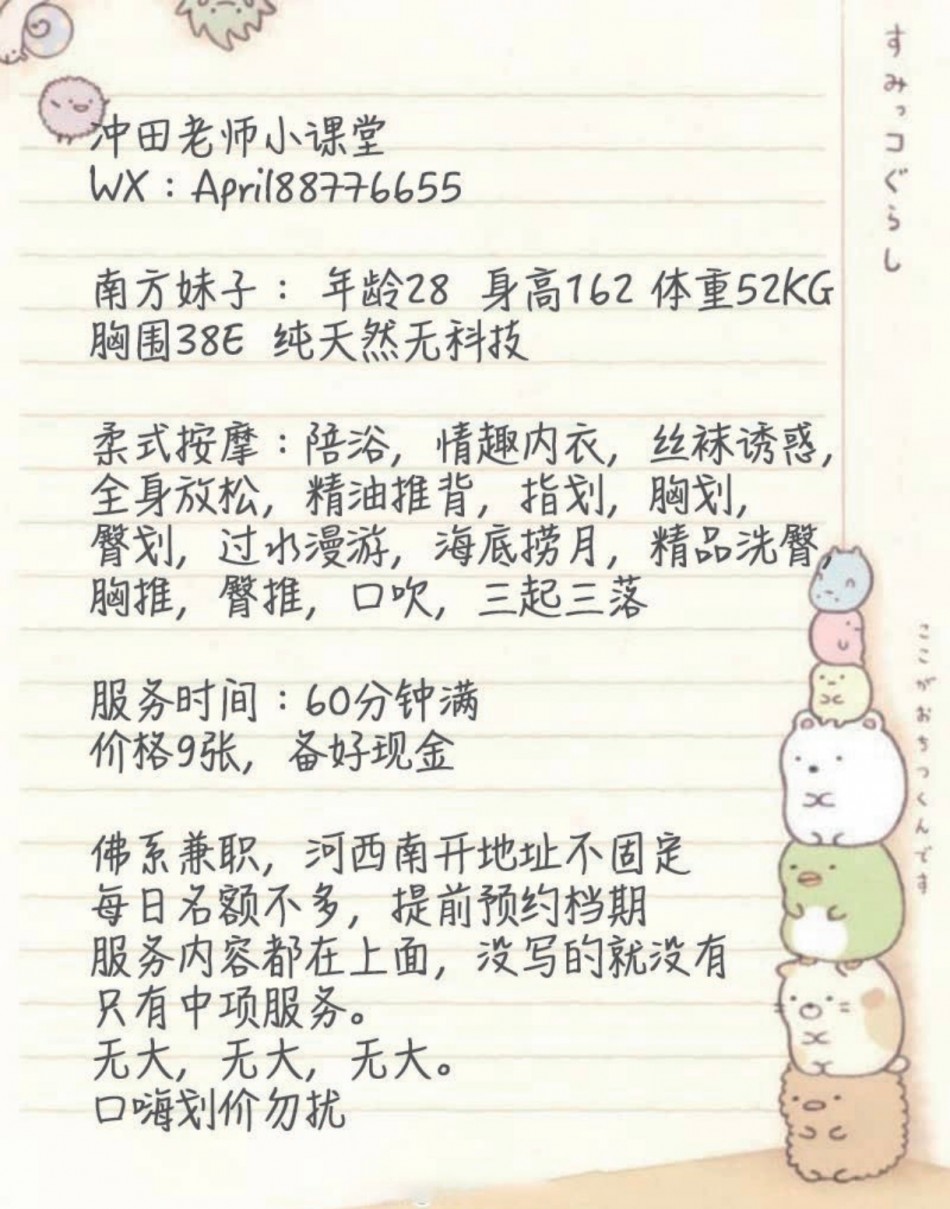 冲田老师小课堂
WX：April88776655
南方妹子： 年龄28 身高162 体重52KG
胸围38E 纯天然无科技
柔式按摩：陪浴，情趣内衣，丝袜诱惑，
全身放松，精油推背，指划，胸划，
臀划，过水漫游，海底捞月，精品洗臀
胸推，臀推，口吹，三起三落
服务时间：60分钟满
价格9张，备好现金
佛系兼职，河西南开地址不固定
每日名额不多，提前预约档期
服务内容都在上面，没写的就没有
只有中项服务。
无大，无大，无大。
口嗨划价勿扰
すみっコぐらし
ここがおちつくんです